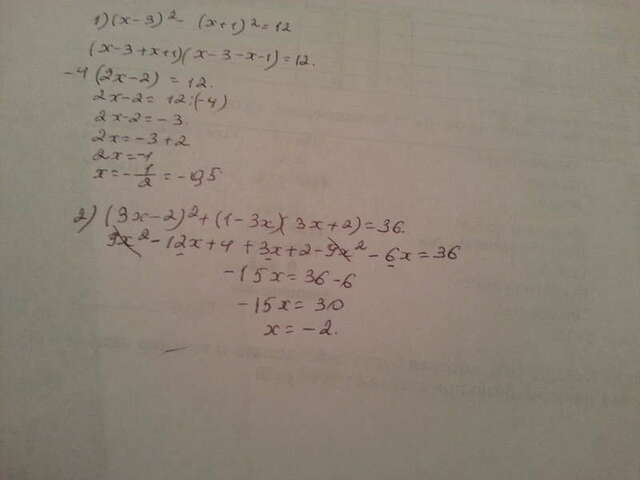 1) (x-3)² - (x+1)² = 12
(x-3+x+1)(x-3-x-1)=12.
-4(2x-2) = 12.
2x-2 = 12:(-4)
2x-2 = -3
2x = -3+2
2x = -1
x = -1/2 = -0,5
2) (3x-2)²+(1-3x)(3x+2)=36.
9x²-12x+4+3x+2-9x²-6x=36
-15x = 36-6
-15x = 30
x = -2.